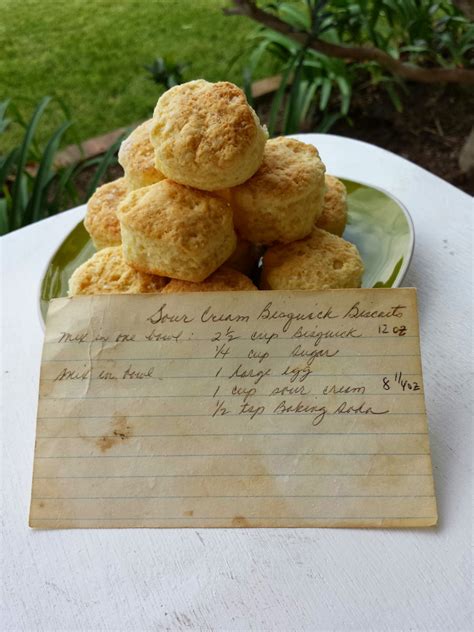 Sour Cream Bisquick Biscuits
Mix in one bowl: 2 ½ cup Bisquick 12 oz
¼ cup Sugar
Mix in bowl 1 large egg
1 cup sour cream 8 11/40z
½ tsp Baking Soda